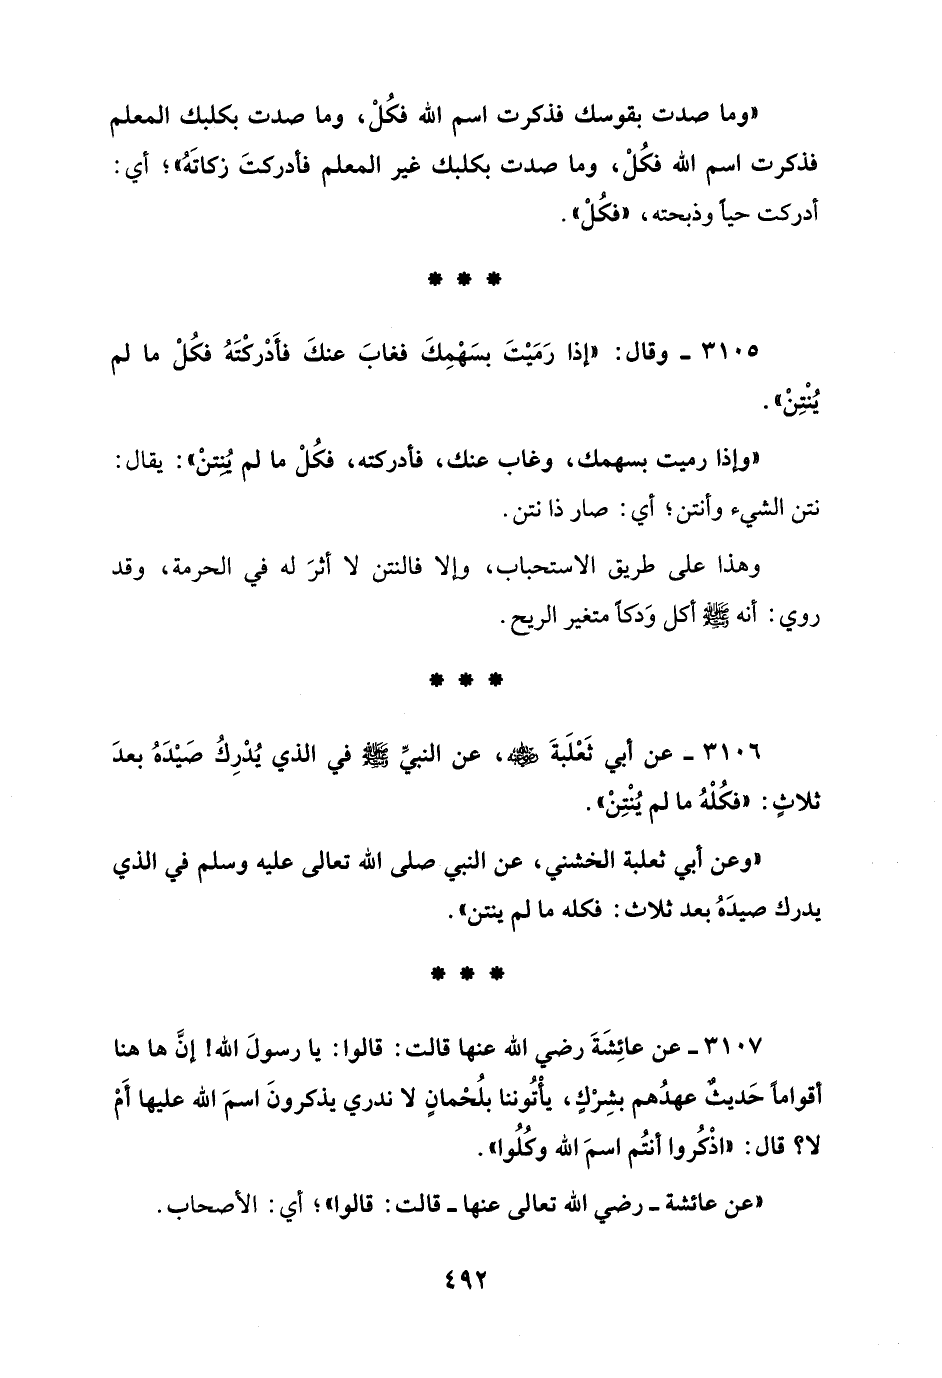 «وما صدت بقوسك فذكرت اسم الله فكُلْ، وما صدت بكلبك المعلم
فذكرت اسم الله فكُلْ، وما صدت بكلبك غير المعلم فأدركتَ زكاتَهُ»؛ أي:
أدركت حياً وذبحته، «فكُلْ».
* * *
٣١٠٥ ـ وقال: «إذا رَمَيْتَ بسَهْمِكَ فغابَ عنكَ فأَدْركْتَهُ فكُلْ ما لم
يُنْتِنْ».
«وإذا رميت بسهمك، وغاب عنك، فأدركته، فكُلْ ما لم يُنِتنْ»: يقال:
نتن الشيء وأنتن؛ أي: صار ذا نتن.
وهذا على طريق الاستحباب، وإلا فالنتن لا أثرَ له في الحرمة، وقد
روي: أنه ﷺ أكل وَدكاً متغير الريح.
* * *
٣١٠٦ ـ عن أبي ثَعْلَبَةَ ﵁، عن النبيِّ ﷺ في الذي يُدْرِكُ صَيْدَهُ بعدَ
ثلاثٍ: «فكُلْهُ ما لم يُنْتِنْ».
«وعن أبي ثعلبة الخشني، عن النبي صلى الله تعالى عليه وسلم في الذي
يدرك صيدَهُ بعد ثلاث: فكله ما لم ينتن».
* * *
٣١٠٧ ـ عن عائِشَةَ رضي الله عنها قالت: قالوا: يا رسولَ الله! إنَّ ها هنا
أقواماً حَديثٌ عهدُهم بشِرْكٍ، يأْتُوننا بلُحْمانٍ لا ندري يذكرونَ اسمَ الله عليها أَمْ
لا؟ قال: «اذْكُروا أنتُم اسمَ الله وكُلُوا».
«عن عائشة ـ رضي الله تعالى عنها ـ قالت: قالوا»؛ أي: الأصحاب.
٤٩٢